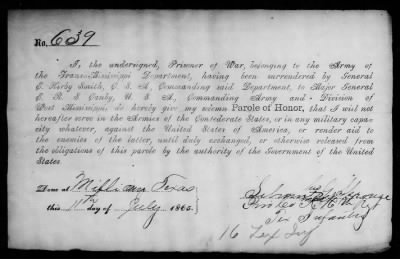 No. 639
I, the undersigned, Prisoner of War, belonging to the Army of
the Trans-Mississippi Department, having been surrendered by General
E. Kirby Smith, C. S. A., Commanding said Department, to Major General
E. R. S. Canby, U. S. A., Commanding Army and Division of
West Mississippi, do hereby give my solemn Parole of Honor, that I will not
hereafter serve in the Armies of the Confederate States, or in any military capa-
city whatever, against the United States of America, or render aid to
the enemies of the latter, until duly exchanged, or otherwise released from
the obligations of this parole by the authority of the Government of the United
States.
Done at Millican Texas
this 11th day of July 1865.
Tex Infantry
16 Tex Inf